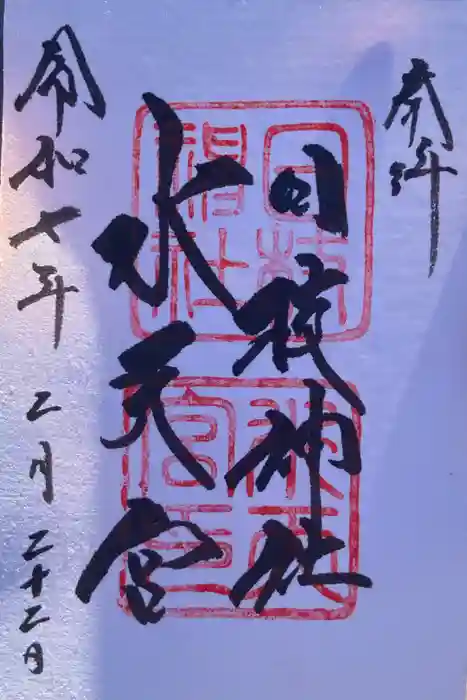 奉拝
日枝神社
水天宮
令和七年二月二十二日
日枝神社